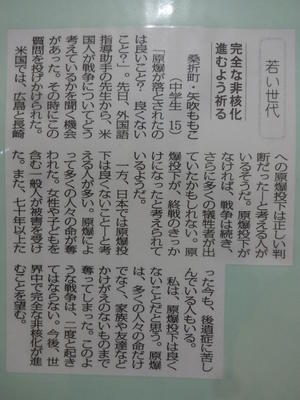 若い世代
完全な非核化
進むよう祈る
桑折町・矢吹ももこ
(中学生 15)
「原爆が落とされたの
は良いこと? 良くない
こと?」。先日、外国語
指導助手の先生から、米
国人が戦争についてどう
考えているかを聞く機会
があった。その時にこの
質問を投げかけられた。
米国では、広島と長崎
への原爆投下は正しい判
断だったーと考える人が
いるそうだ。原爆投下が
なければ、戦争は続き、
さらに多くの犠牲者が出
ていたかもしれない。原
爆投下が、終戦のきっか
けになったと考えられて
いるようだ。
一方、日本では原爆投
下は良くないことーと考
える人が多い。原爆によ
って多くの人々の命が奪
われた。女性や子どもを
含む一般人が被害を受け
た。また、七十年以上た
った今も、後遺症に苦し
んでいる人もいる。
私は、原爆投下は良く
ないことだと思う。原爆
は、多くの人々の命だけ
でなく、家族や友達など
かけがえのないものまで
奪ってしまった。このよ
うな戦争は、二度と起き
てはならない。今後、世
界中で完全な非核化が進
むことを望む。